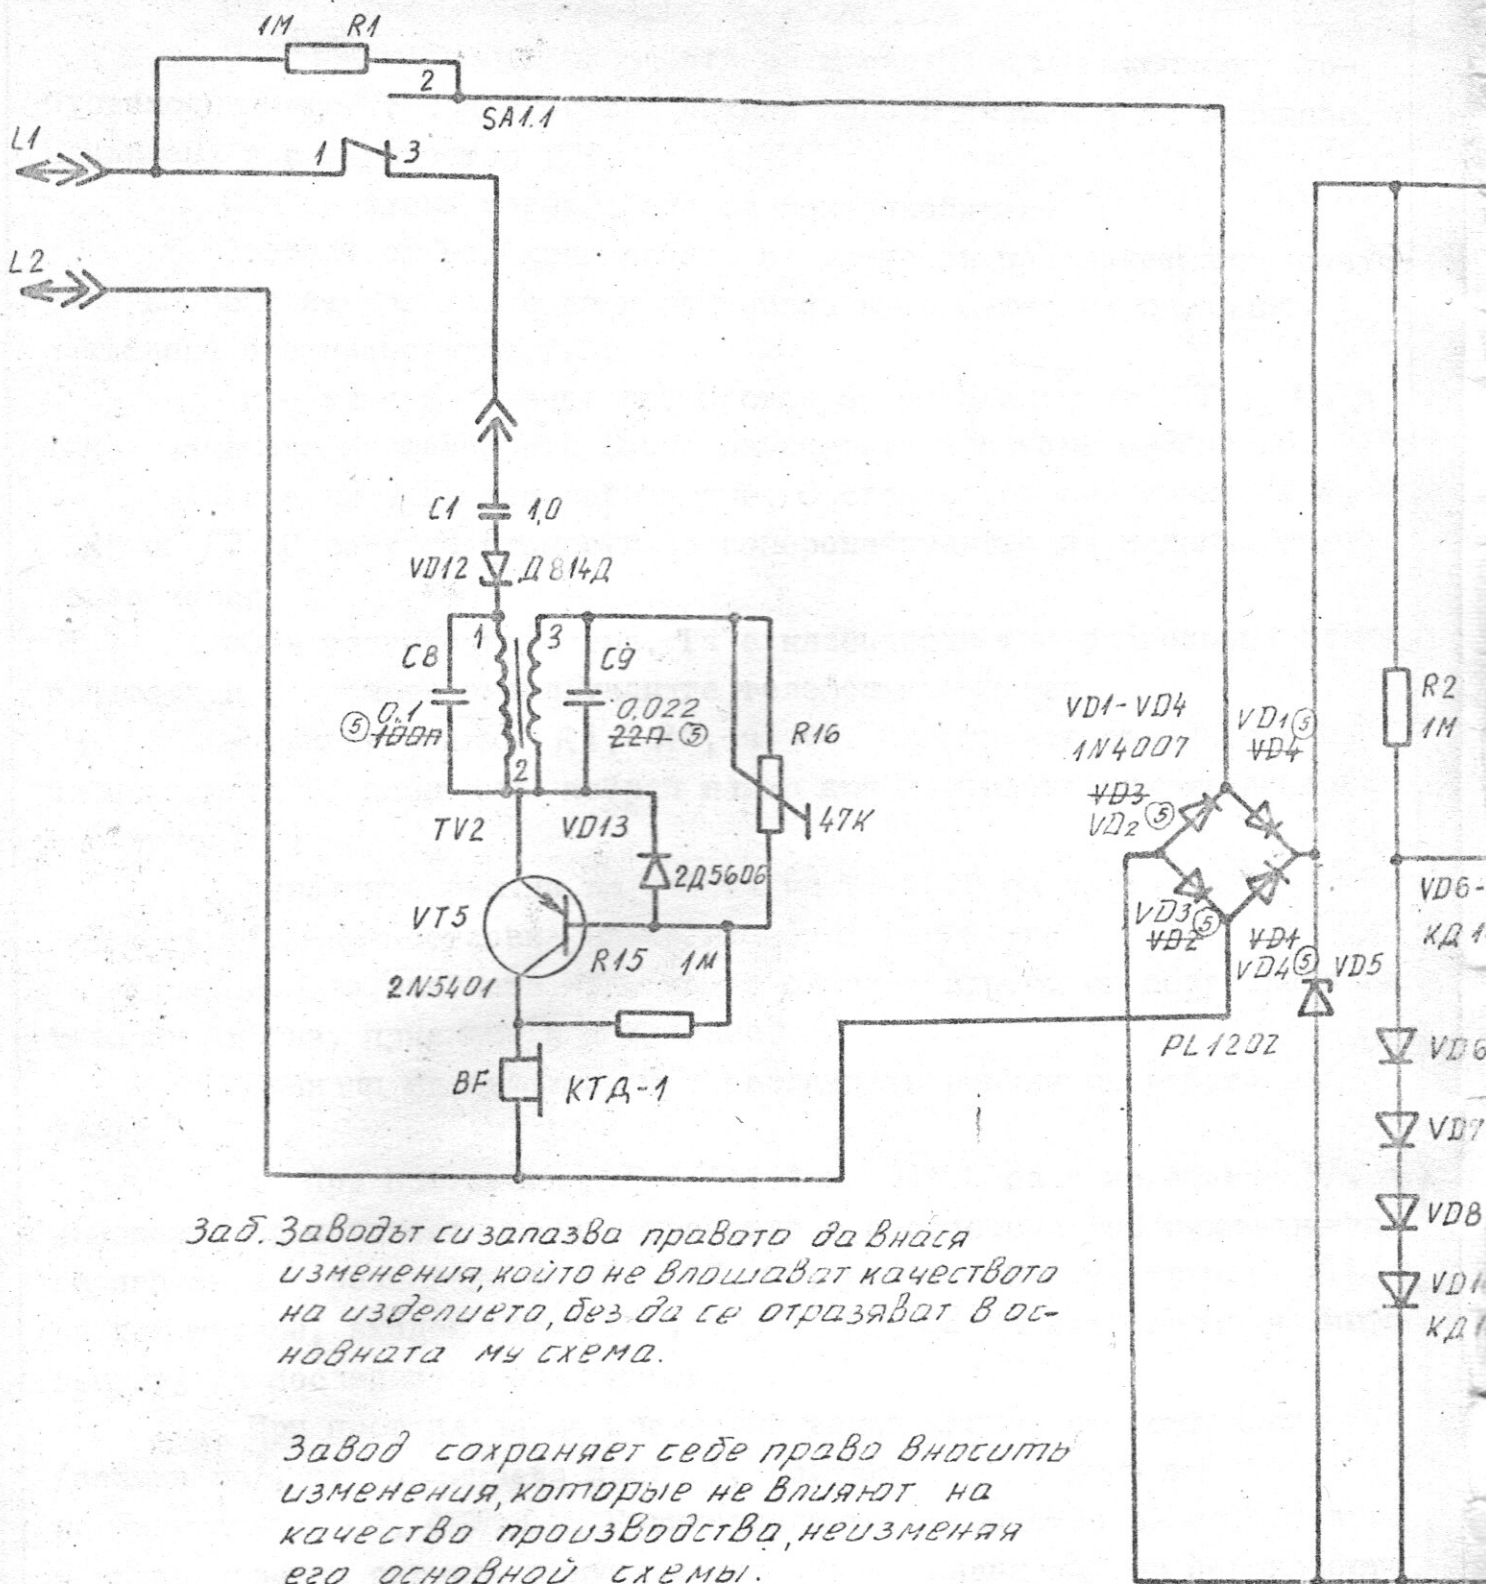 1М R1
2
SA1.1
L1
1 3
L2
C1 1,0
VD12 Д814Д
1 3
C8 C9
0.1 0.022
⑤ 100п 22п ⑤
2
R16
47К
TV2 VD13
2Д5606
VT5
R15 1М
2N5401
BF КТД-1
VD1-VD4
1N4007
VD1 ⑤
VD4
VD3
VD2 ⑤
VD3 ⑤
VD2
VD1
VD4 ⑤ VD5
PL120Z
R2
1М
VD6-
КД1
VD6
VD7
VD8
VD1
КД1
Заб. Заводът си запазва правото да внася
изменения, които не влошават качеството
на изделието, без да се отразяват в ос-
новната му схема.
Завод сохраняет себе право вносить
изменения, которые не влияют на
качество производства, неизменяя
его основной схемы.